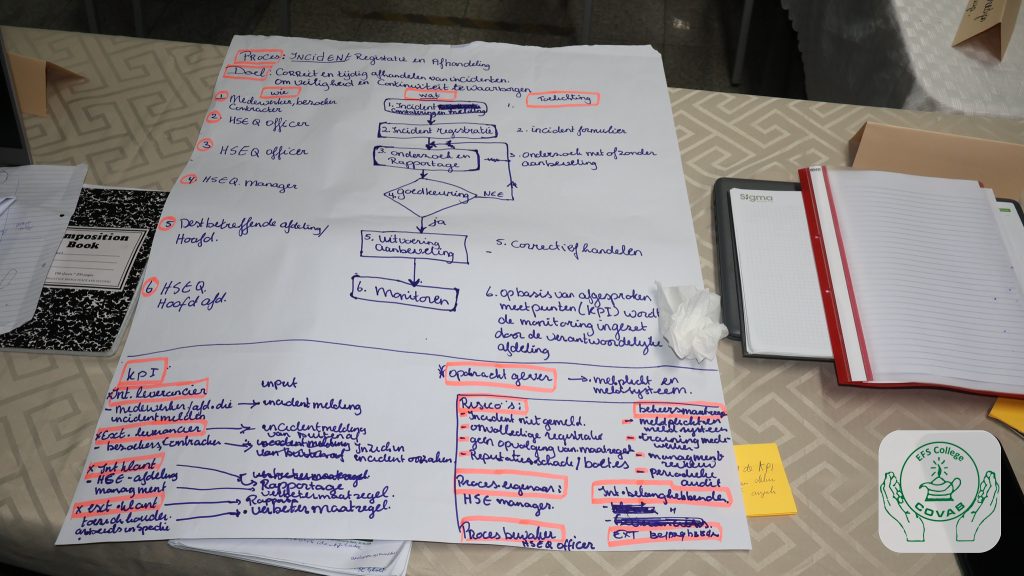 Proces: INCIDENT Registratie en Afhandeling
Doel: Correct en tijdig afhandelen van incidenten.
om veiligheid en Continuiteit te waarborgen
wie
wat
Toelichting
1 Medewerker, bezoeker
Contracter
1. Incident
2 HSEQ Officer
2. Incident registratie
2. incident formulier
3 HSEQ officer
3. Onderzoek en
Rapportage
3. Onderzoek met of zonder
aanbeveling
4. HSEQ. Manager
4. goedkeuring
NEE
ja
5 Desbetreffende afdeling/
Hoofd.
5. Uitvoering
aanbeveling
5. Correctief handelen
6 HSEQ
Hoofd afd.
6. Monitoren
6. op basis van afgesproken
meetpunten (KPI) wordt
de monitoring ingezet
door de verantwoordelijke
afdeling
KPI
x Int. leverancier
input
- medewerker/afd. die
incident melden
incident melding
x Ext. leverancier
incident melding
van buitenaf
- bezoekers/Contracter
x Int klant
- HSE-afdeling
managment
Rapportage
verbetermaatregel.
x ext. klant
Rapport
verbetermaatregel.
toezichthouder
arbeidsinspectie
x opdracht gever
meldplicht en
meldsysteem.
Risico's:
- Incident niet gemeld.
- onvolledige registratie
- geen opvolging van maatregel
- Reputatieschade/boetes
- meldplicht en
meld systeem
- training mede
werker
- managment
review
- periodieke
audit
Proces eigenaar:
HSE manager.
Int. belanghebbenden
Proces bewaker
HSEQ officer
EXT
de KPI
Composition
Book
Sigma
EFS College
COVAB